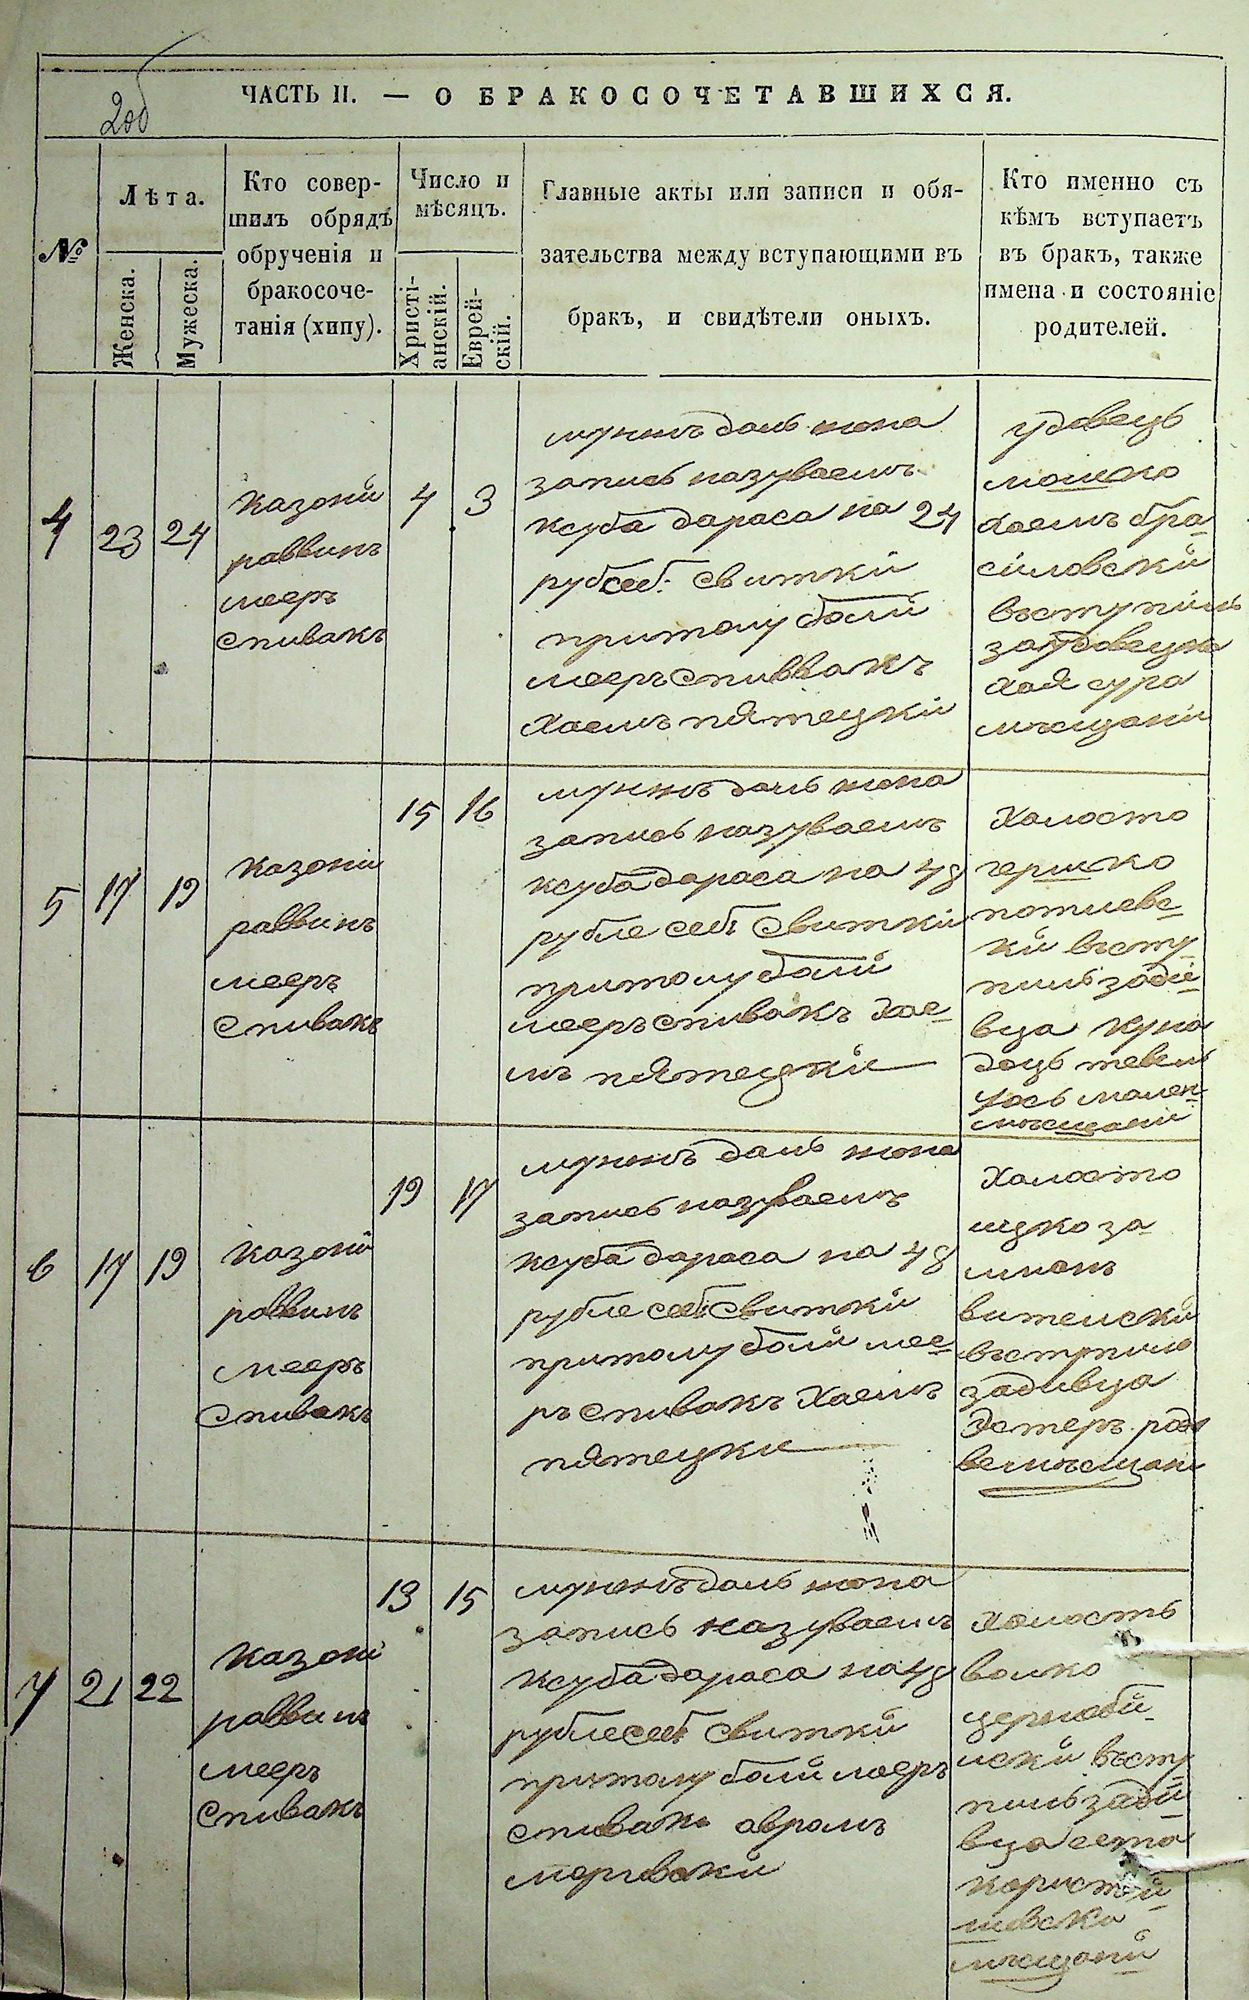 206
ЧАСТЬ II. — О БРАКОСОЧЕТАВШИХСЯ.
№
Лѣта.
Женска.
Мужеска.
Кто совер-
шилъ обрядъ
обрученія и
бракосоче-
танія (хипу).
Число и
мѣсяцъ.
Христі-
анскій.
Еврей-
скій.
Главные акты или записи и обя-
зательства между вступающими въ
бракъ, и свидѣтели оныхъ.
Кто именно съ
кѣмъ вступаетъ
въ бракъ, также
имена и состояніе
родителей.
4
23
24
казоній
раввинъ
мееръ
спивакъ
4
3
мужнъ далъ жона
запись называемъ
ксуба дараса на 24
руб себ: свиткй
притому болй
мееръ спиввакъ
Хаемъ пятецкій
удовецъ
мошко
Хаемъ бра-
силовскй
въступилъ
заудовецка
Хая сура
мъещаны
5
17
19
казоній
раввинъ
мееръ
спивакъ
15
16
мужнъ далъ жона
запись называемъ
ксуба дараса на 48
рубле себ свиткй
притому болй
мееръ спивакъ Хае-
мъ пятецкй
Халосто
гершко
кй въсту-
пилъ заде-
вца
доць
мъещаны
6
17
19
казоній
раввинъ
мееръ
спивакъ
19
17
мужнъ далъ жона
запись называемъ
ксуба дараса на 48
рубле себ свиткй
притому болй мее-
ръ спивакъ Хаемъ
пятецки
Халосто
ицко за-
въступило
задивца
Эстеръ
7
21
22
казоній
раввинъ
мееръ
спивакъ
13
15
мужнъ далъ жона
запись называемъ
ксуба дараса на 48
рубле себ свиткй
притому болй мееръ
спивакъ аврамъ
Халостъ
волко
чернобй-
лскй въсту-
пилъ заде-
вца
мъещаны